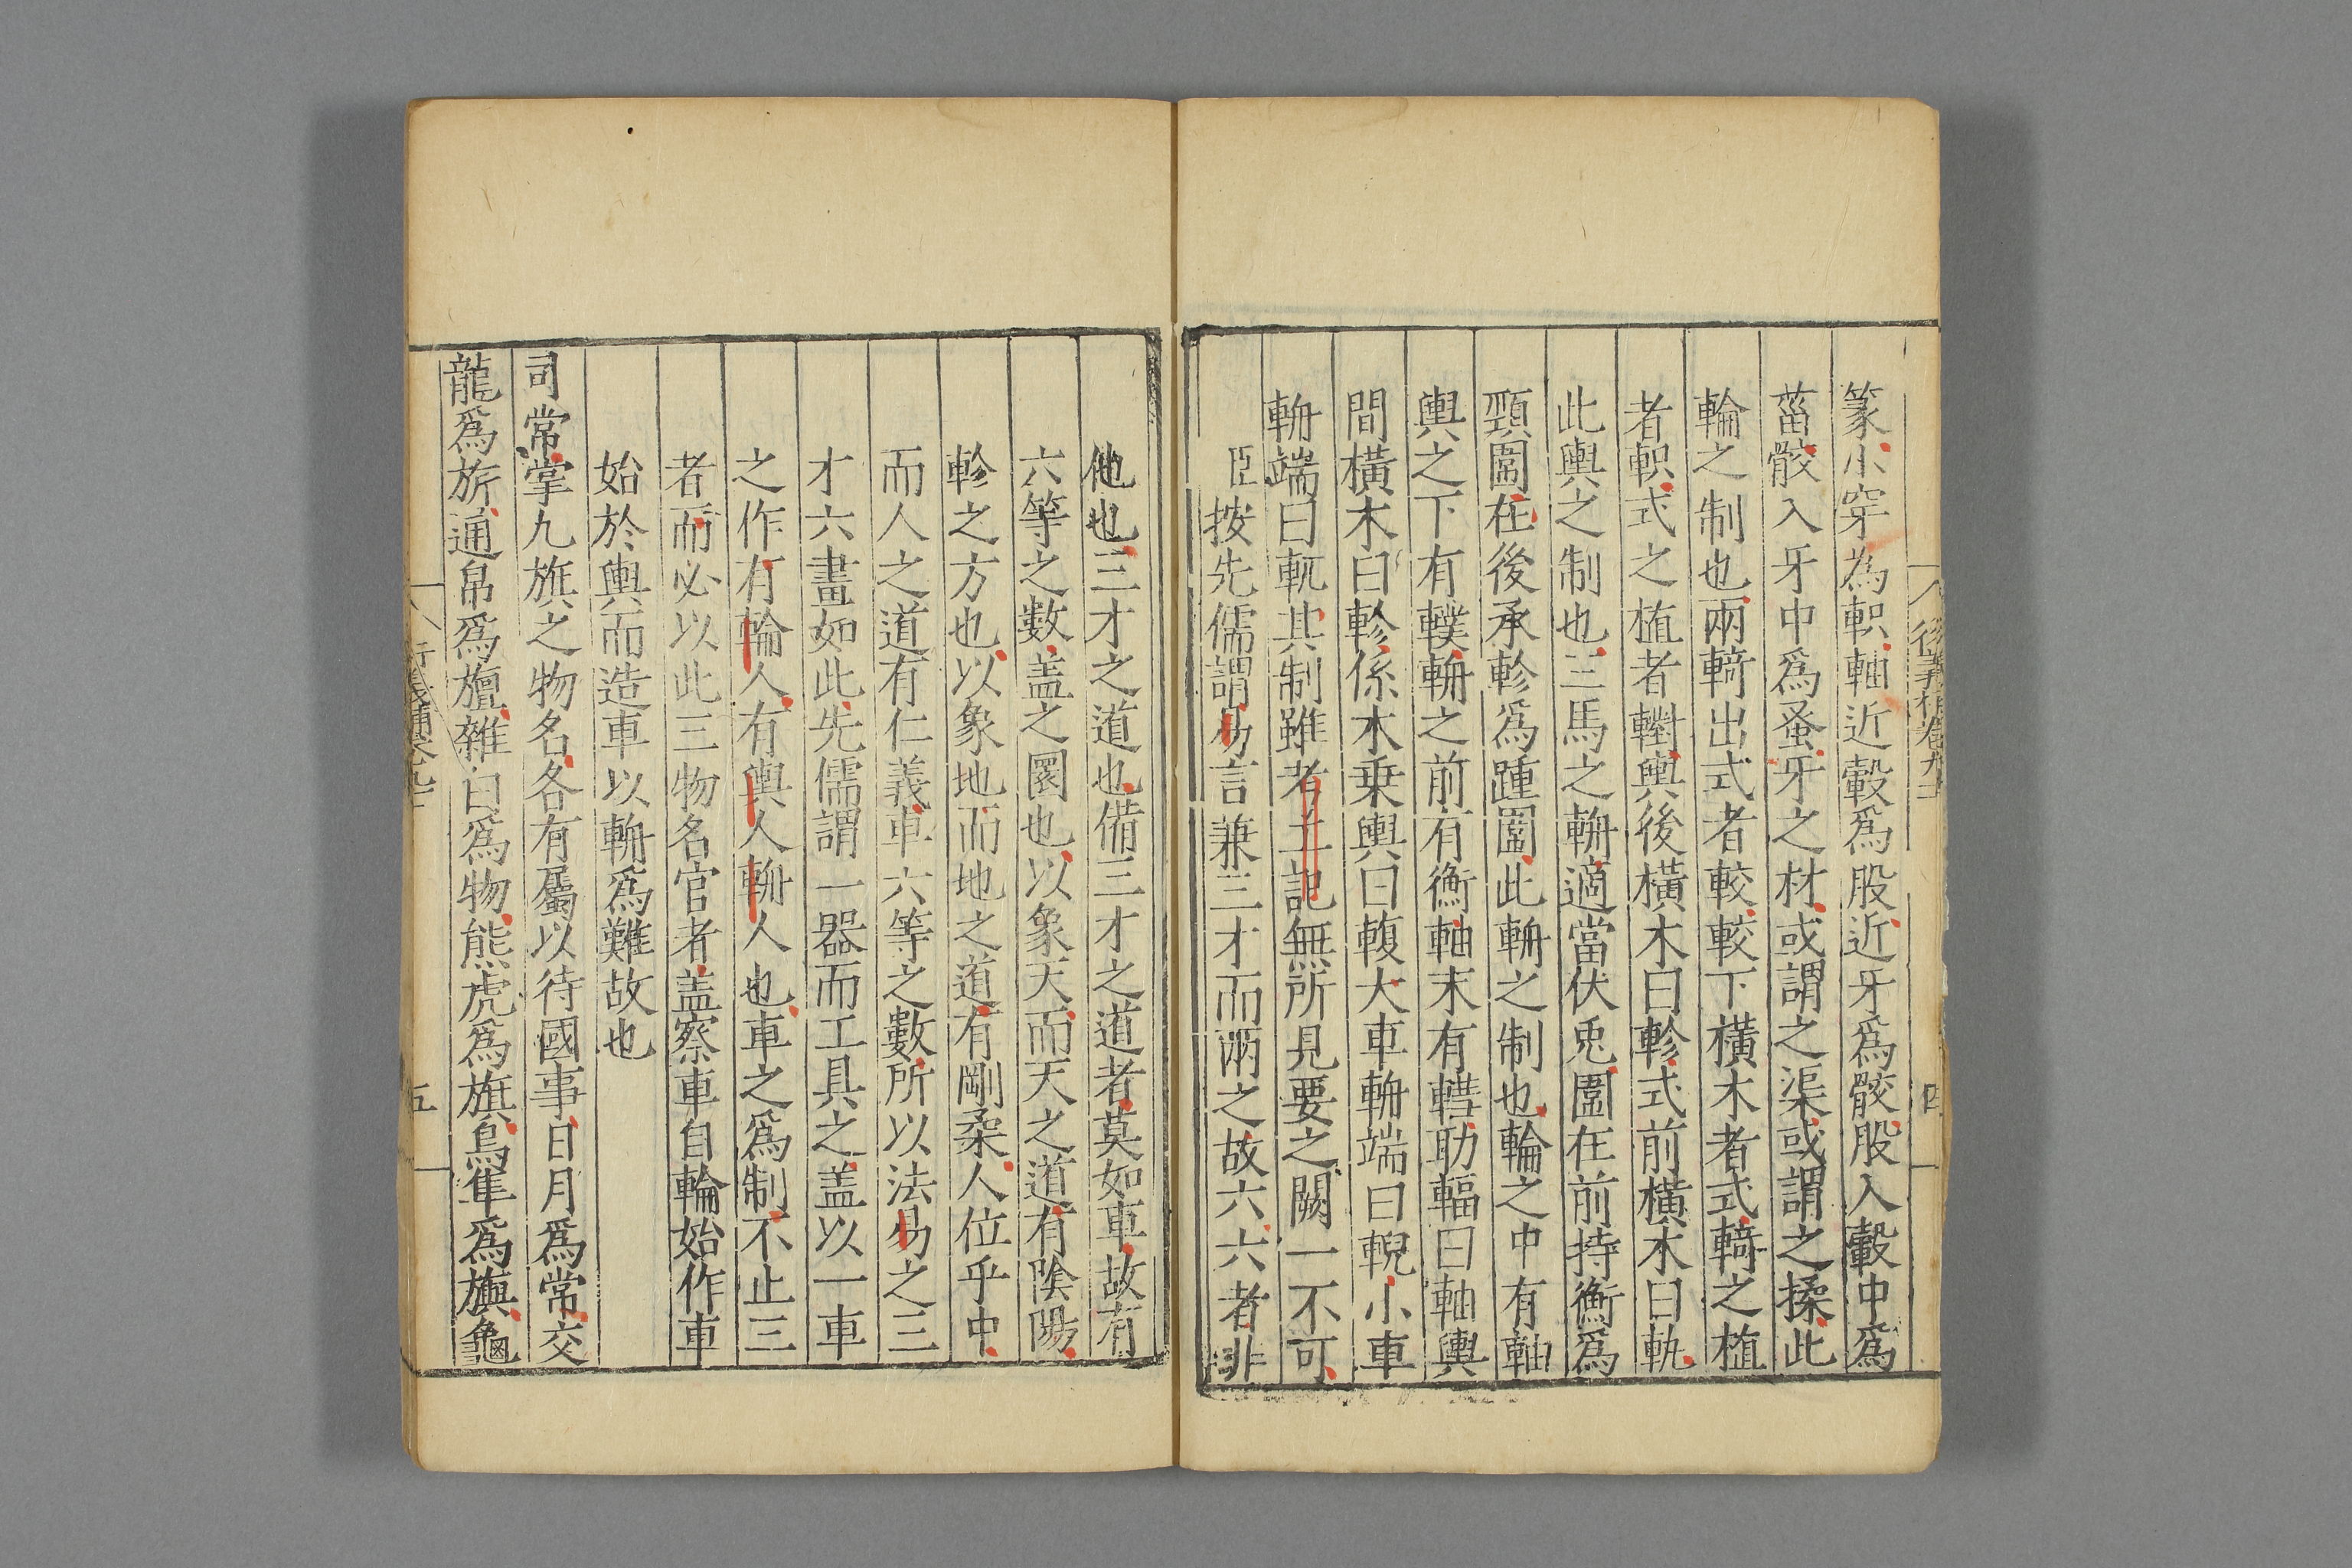 篆小穿為軹軸近轂爲股近牙爲骹股入轂中爲
菑骹入牙中爲蚤牙之材或謂之渠或謂之揉此
輪之制也兩輢出式者較較下橫木者式輢之植
者軹式之植者轛輿後橫木曰軫式前橫木曰軓
此輿之制也三馬之輈適當伏兎圍在前持衡爲
頸圍在後承軫爲踵圍此輈之制也輪之中有軸
輿之下有轐輈之前有衡軸末有轊助輻曰軸輿
間橫木曰軫係木乗輿曰輹大車輈端曰輗小車
輈端曰軏其制雖考工記無所見要之闕一不可
臣按先儒謂易言兼三才而兩之故六六者非
他也三才之道也備三才之道者莫如車故有
六等之數盖之圜也以象天而天之道有陰陽
軫之方也以象地而地之道有剛柔人位乎中
而人之道有仁義車六等之數所以法易之三
才六畫如此先儒謂一器而工具之盖以一車
之作有輪人有輿人輈人也車之爲制不止三
者而必以此三物名官者盖察車自輪始作車
始於輿而造車以輈爲難故也
司常掌九旗之物名各有屬以待國事日月爲常交
龍爲旂通帛爲旜雜白爲物熊虎爲旗鳥隼爲旟龜
四
五